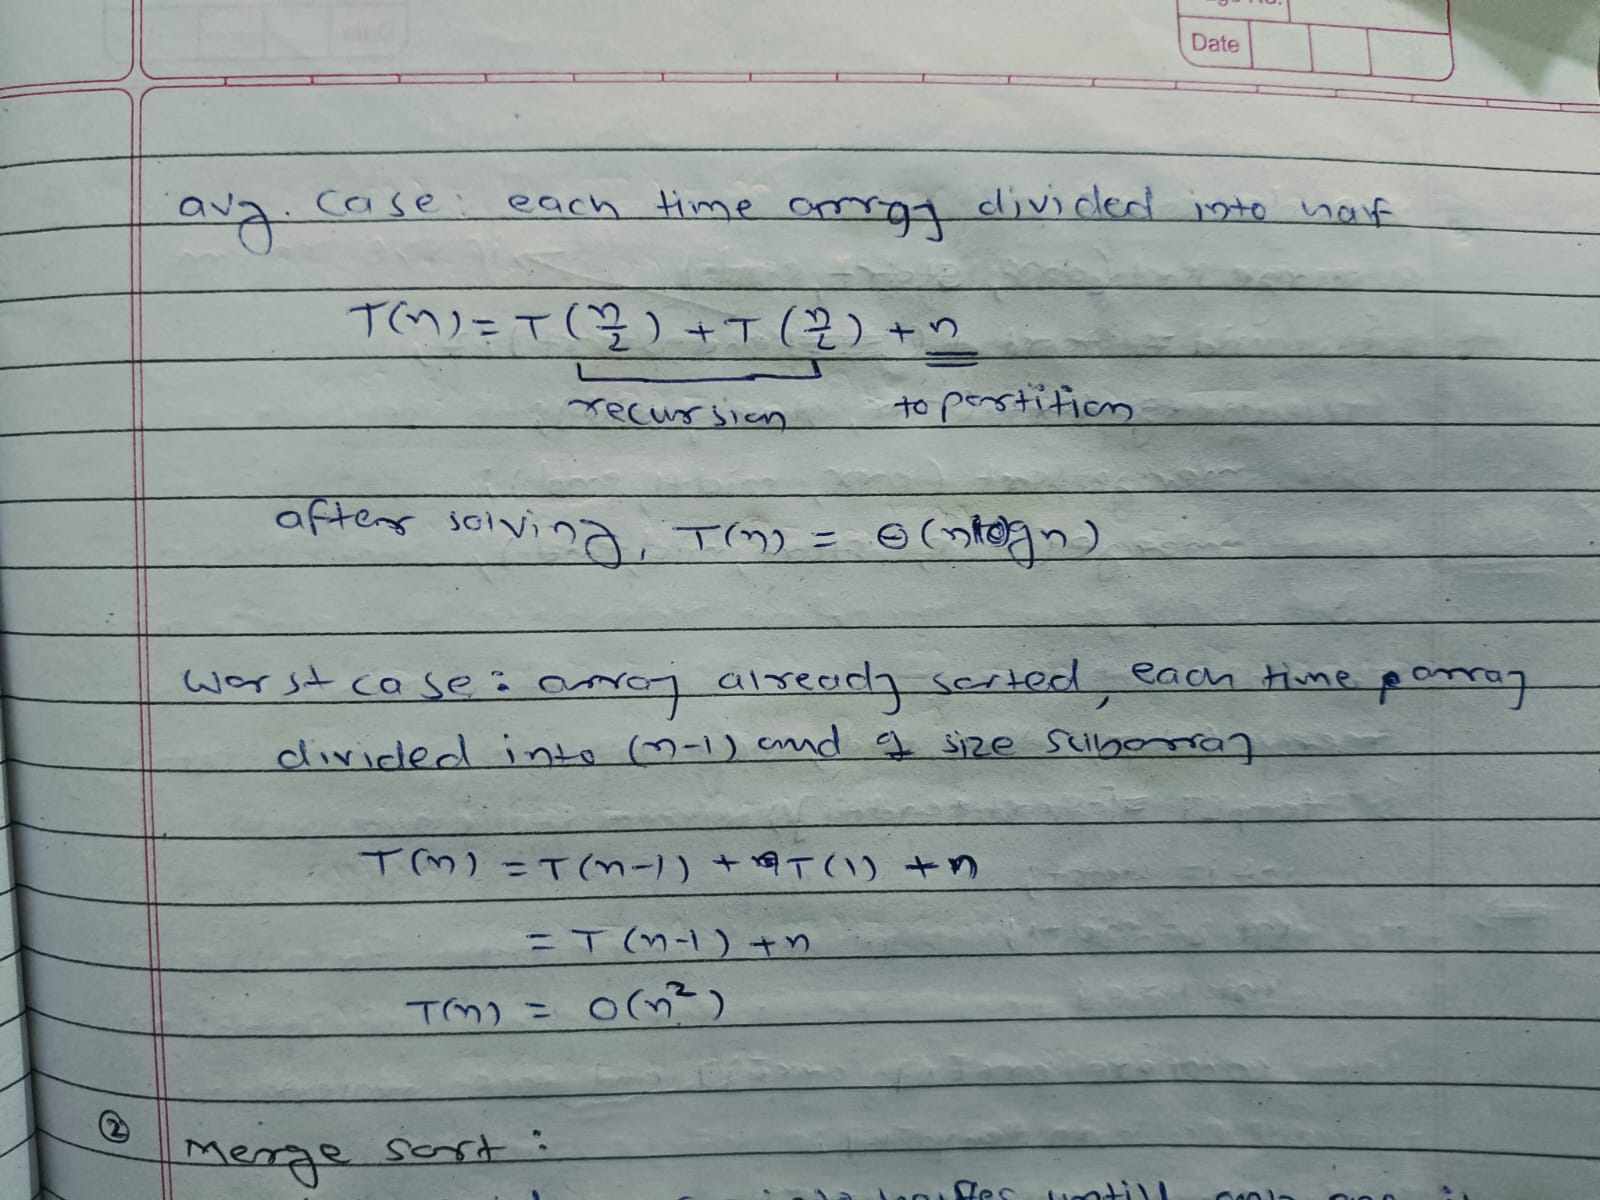 Date
avg. case: each time array divided into half
T(n) = T(n/2) + T(n/2) + n
recursion to partition
after solving, T(n) = Θ(nlogn)
worst case: array already sorted, each time array
divided into (n-1) and 1 size subarray
T(n) = T(n-1) + T(1) + n
= T(n-1) + n
T(n) = O(n²)
② Merge sort:
until only one